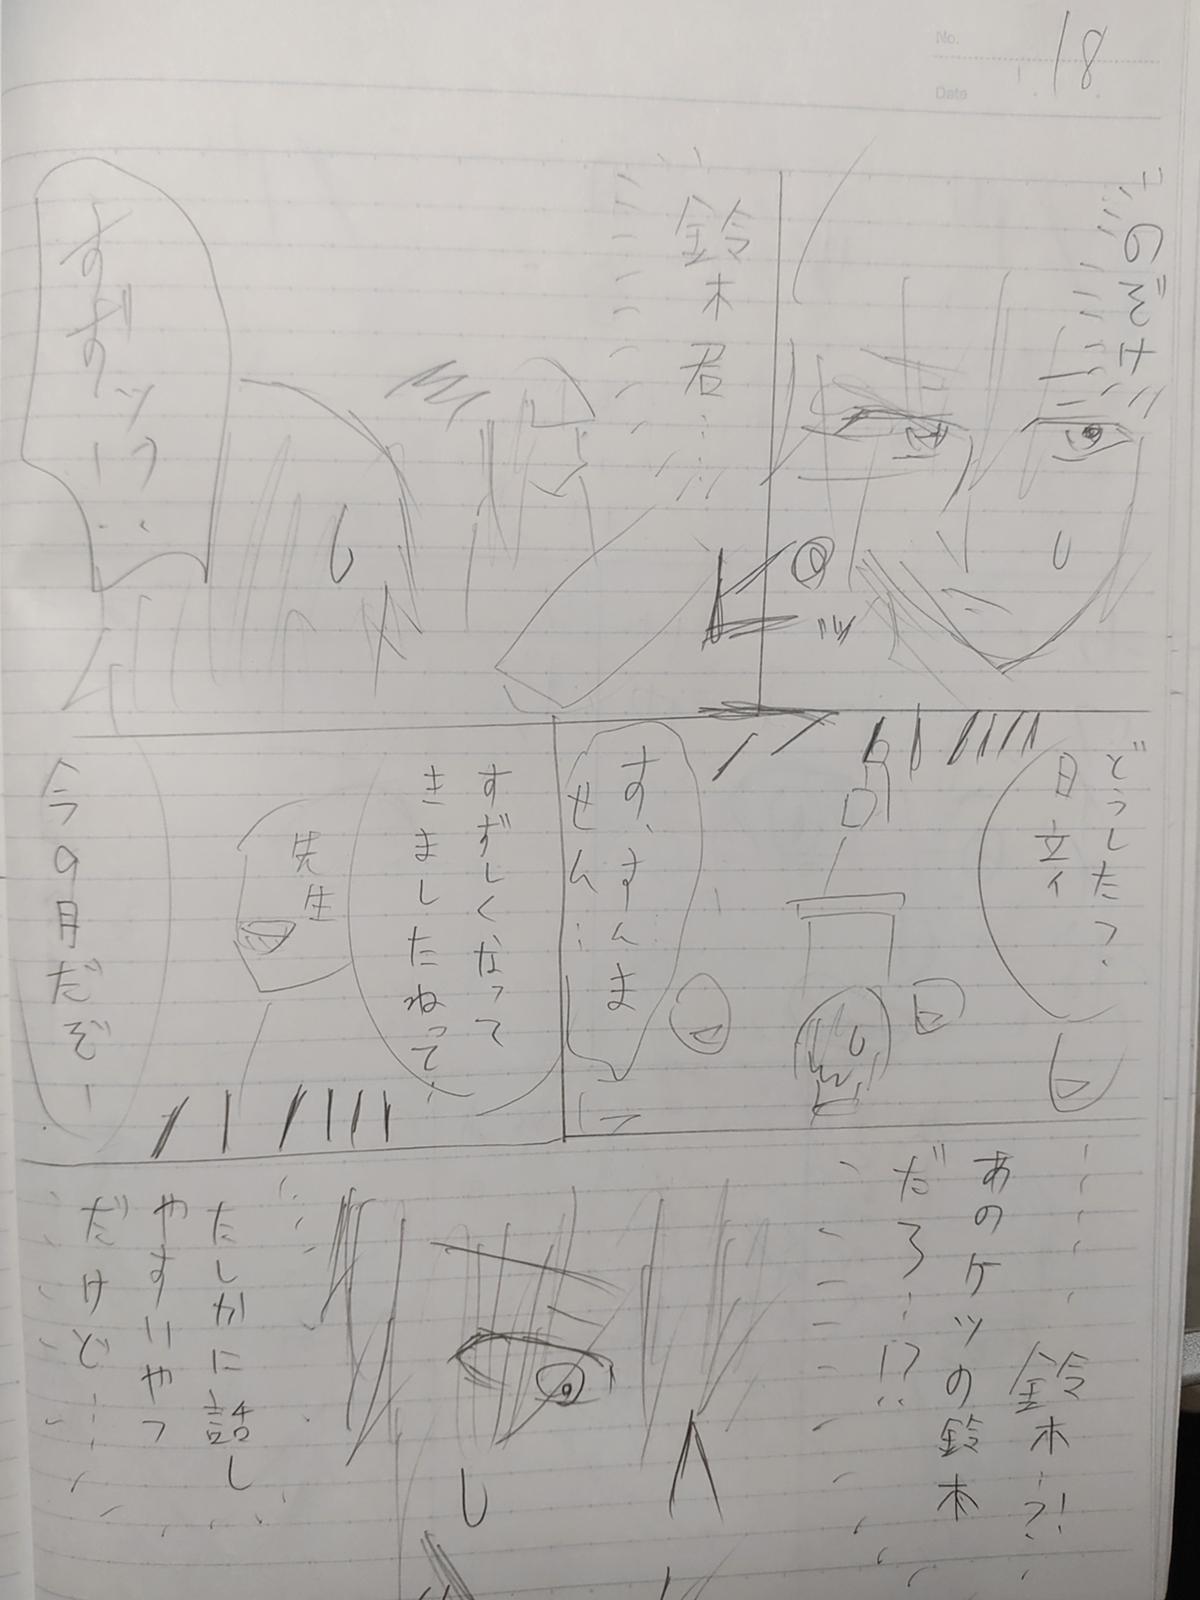 No. 18
Date
鈴木君……
すずッ!?…
どうした?
日立
す、すんま
せん…
すずしくなって
きましたねって…
先生
今9月だぞー
鈴木…?!
あのケツの鈴木
だろ…!?
たしかに話し
やすいやつ
だけど……